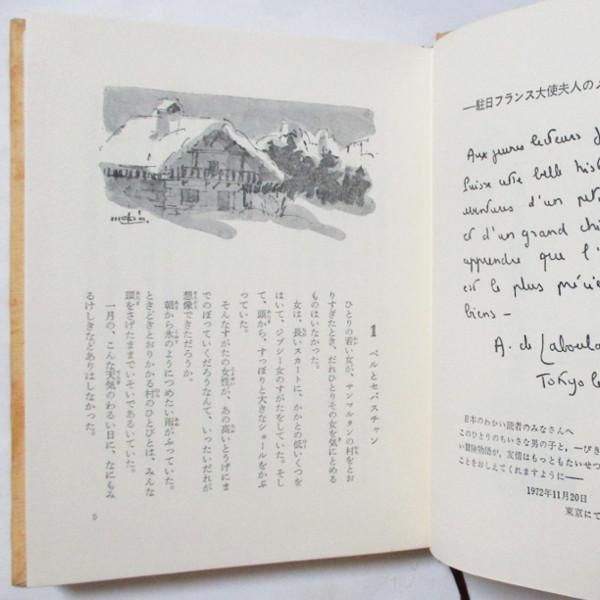 1 ベルとセバスチャン
ひとりの若い女が、サン＝マルタンの村をとお
りすぎたとき、だれひとりその女を気にとめる
ものはいなかった。
女は、長いスカートに、かかとの低いくつを
はいて、ジプシー女のすがたをしていた。そし
て、頭から、すっぽりと大きなショールをかぶ
っていた。
そんなすがたの女性が、あの高いとうげにま
でのぼっていくだろうなんて、いったいだれが
想像できただろうか。
朝から氷のようにつめたい雨がふっていた。
ときどきとおりかかる村のひとびとは、みんな
頭をさげたままでいそいであるいていた。
一月の、こんな天気のわるい日に、なにもみ
るけしきなどありはしなかった。
5
―駐日フランス大使夫人の
Aux jeunes lecteurs d
Puisse cette belle hist
aventures d'un pet
et d'un grand chi
apprendre que l'
est le plus préci
biens -
A. de Laboula
Tokyo le
日本のわかい読者のみなさんへ
このひとりのちいさな男の子と、一ぴき
い冒険物語が、友情はもっともたいせつ
ことをおしえてくれますように――
1972年11月20日
東京にて